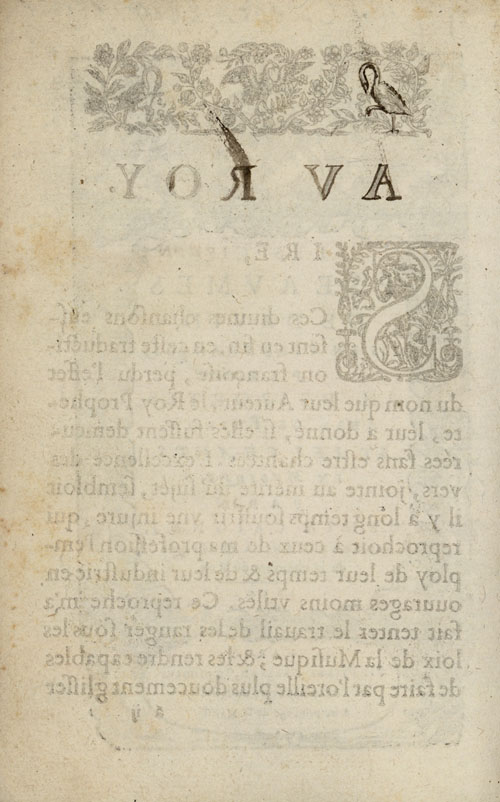 AV ROY.
SIRE,
Ces diuines chanſons euſ-
ſent en fin, en ceſte traducti-
on françoiſe, perdu l'effet
du nom que leur Auteur, le Roy Prophe-
te, leur a donné, ſi elles fuſſent demeu-
rées ſans eſtre chantées: l'excellence des
vers, jointe au merite du ſujet, ſembloit
il y a long temps ſouffrir vne injure, qui
reprochoit à ceux de ma profeſſion l'em-
ploy de leur temps & de leur induſtrie en
ouurages moins vtiles. Ce reproche m'a
fait tenter le trauail de les ranger ſous les
loix de la Muſique; & les rendre capables
de faire par l'oreille plus doucement gliſſer
ã ij